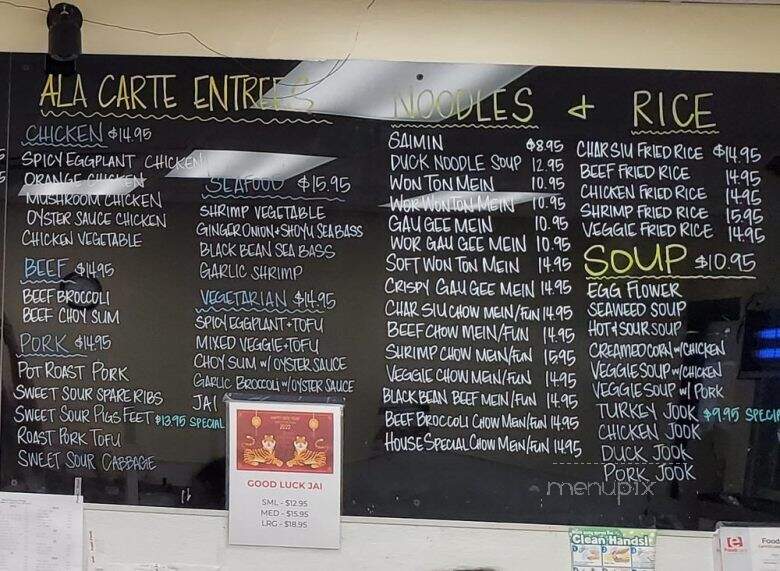 ALA CARTE ENTREES
CHICKEN $14.95
SPICY EGGPLANT CHICKEN
ORANGE CHICKEN
MUSHROOM CHICKEN
OYSTER SAUCE CHICKEN
CHICKEN VEGETABLE
BEEF $14.95
BEEF BROCCOLI
BEEF CHOY SUM
PORK $14.95
POT ROAST PORK
SWEET SOUR SPARE RIBS
SWEET SOUR PIGS FEET $13.95 SPECIAL
ROAST PORK TOFU
SWEET SOUR CABBAGE
SEAFOOD $15.95
SHRIMP VEGETABLE
GINGER ONION+SHOYU SEA BASS
BLACK BEAN SEA BASS
GARLIC SHRIMP
VEGETARIAN $14.95
SPICY EGGPLANT+TOFU
MIXED VEGGIE+TOFU
CHOY SUM W/ OYSTER SAUCE
GARLIC BROCCOLI W/ OYSTER SAUCE
JAI
2022
GOOD LUCK JAI
SML - $12.95
MED - $15.95
LRG - $18.95
NOODLES & RICE
SAIMIN $8.95
DUCK NOODLE SOUP 12.95
WON TON MEIN 10.95
WOR WON TON MEIN 10.95
GAU GEE MEIN 10.95
WOR GAU GEE MEIN 10.95
SOFT WON TON MEIN 14.95
CRISPY GAU GEE MEIN 14.95
CHAR SIU CHOW MEIN/FUN 14.95
BEEF CHOW MEIN/FUN 14.95
SHRIMP CHOW MEIN/FUN 15.95
VEGGIE CHOW MEIN/FUN 14.95
BLACK BEAN BEEF MEIN/FUN 14.95
BEEF BROCCOLI CHOW MEIN/FUN 14.95
HOUSE SPECIAL CHOW MEIN/FUN 14.95
CHAR SIU FRIED RICE $14.95
BEEF FRIED RICE 14.95
CHICKEN FRIED RICE 14.95
SHRIMP FRIED RICE 15.95
VEGGIE FRIED RICE 14.95
SOUP $10.95
EGG FLOWER
SEAWEED SOUP
HOT & SOUR SOUP
CREAMED CORN W/ CHICKEN
VEGGIE SOUP W/ CHICKEN
VEGGIE SOUP W/ PORK
TURKEY JOOK $9.95 SPECI
CHICKEN JOOK
DUCK JOOK
PORK JOOK
menupix
Clean Hands!
Food